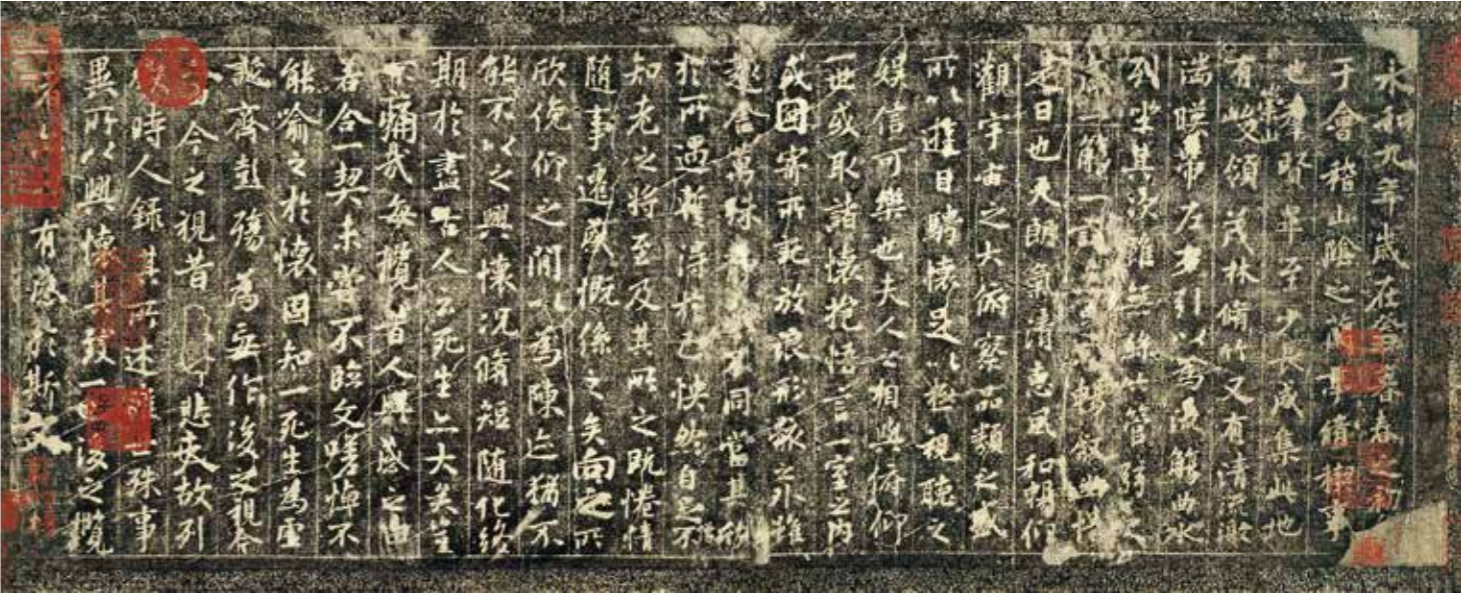 永和九年歲在癸丑暮春之初
于會稽山陰之蘭亭脩稧事
也羣賢畢至少長咸集此地
崇山
有峻領茂林脩竹又有清流激
湍暎帶左右引以為流觴曲水
列坐其次雖無絲竹管弦之
盛一觴一詠暢敘幽情
是日也天朗氣清惠風和暢仰
觀宇宙之大俯察品類之盛
所以遊目騁懷足以極視聽之
娛信可樂也夫人之相與俯仰
一世或取諸懷抱悟言一室之內
或因寄所託放浪形骸之外雖
趣舍萬殊靜躁不同當其欣
於所遇蹔得於己快然自足不
知老之將至及其所之既惓情
隨事遷感慨係之矣向之所
欣俛仰之閒以為陳迹猶不
能不以之興懷況脩短隨化終
期於盡古人云死生亦大矣豈
不痛哉每攬昔人興感之由
若合一契未嘗不臨文嗟悼不
能喻之於懷固知一死生為虛
誕齊彭殤為妄作後之視今
今之視昔悲夫故列
時人錄其所述雖世殊事
異所以興懷其致一也後之攬
者有感於斯文